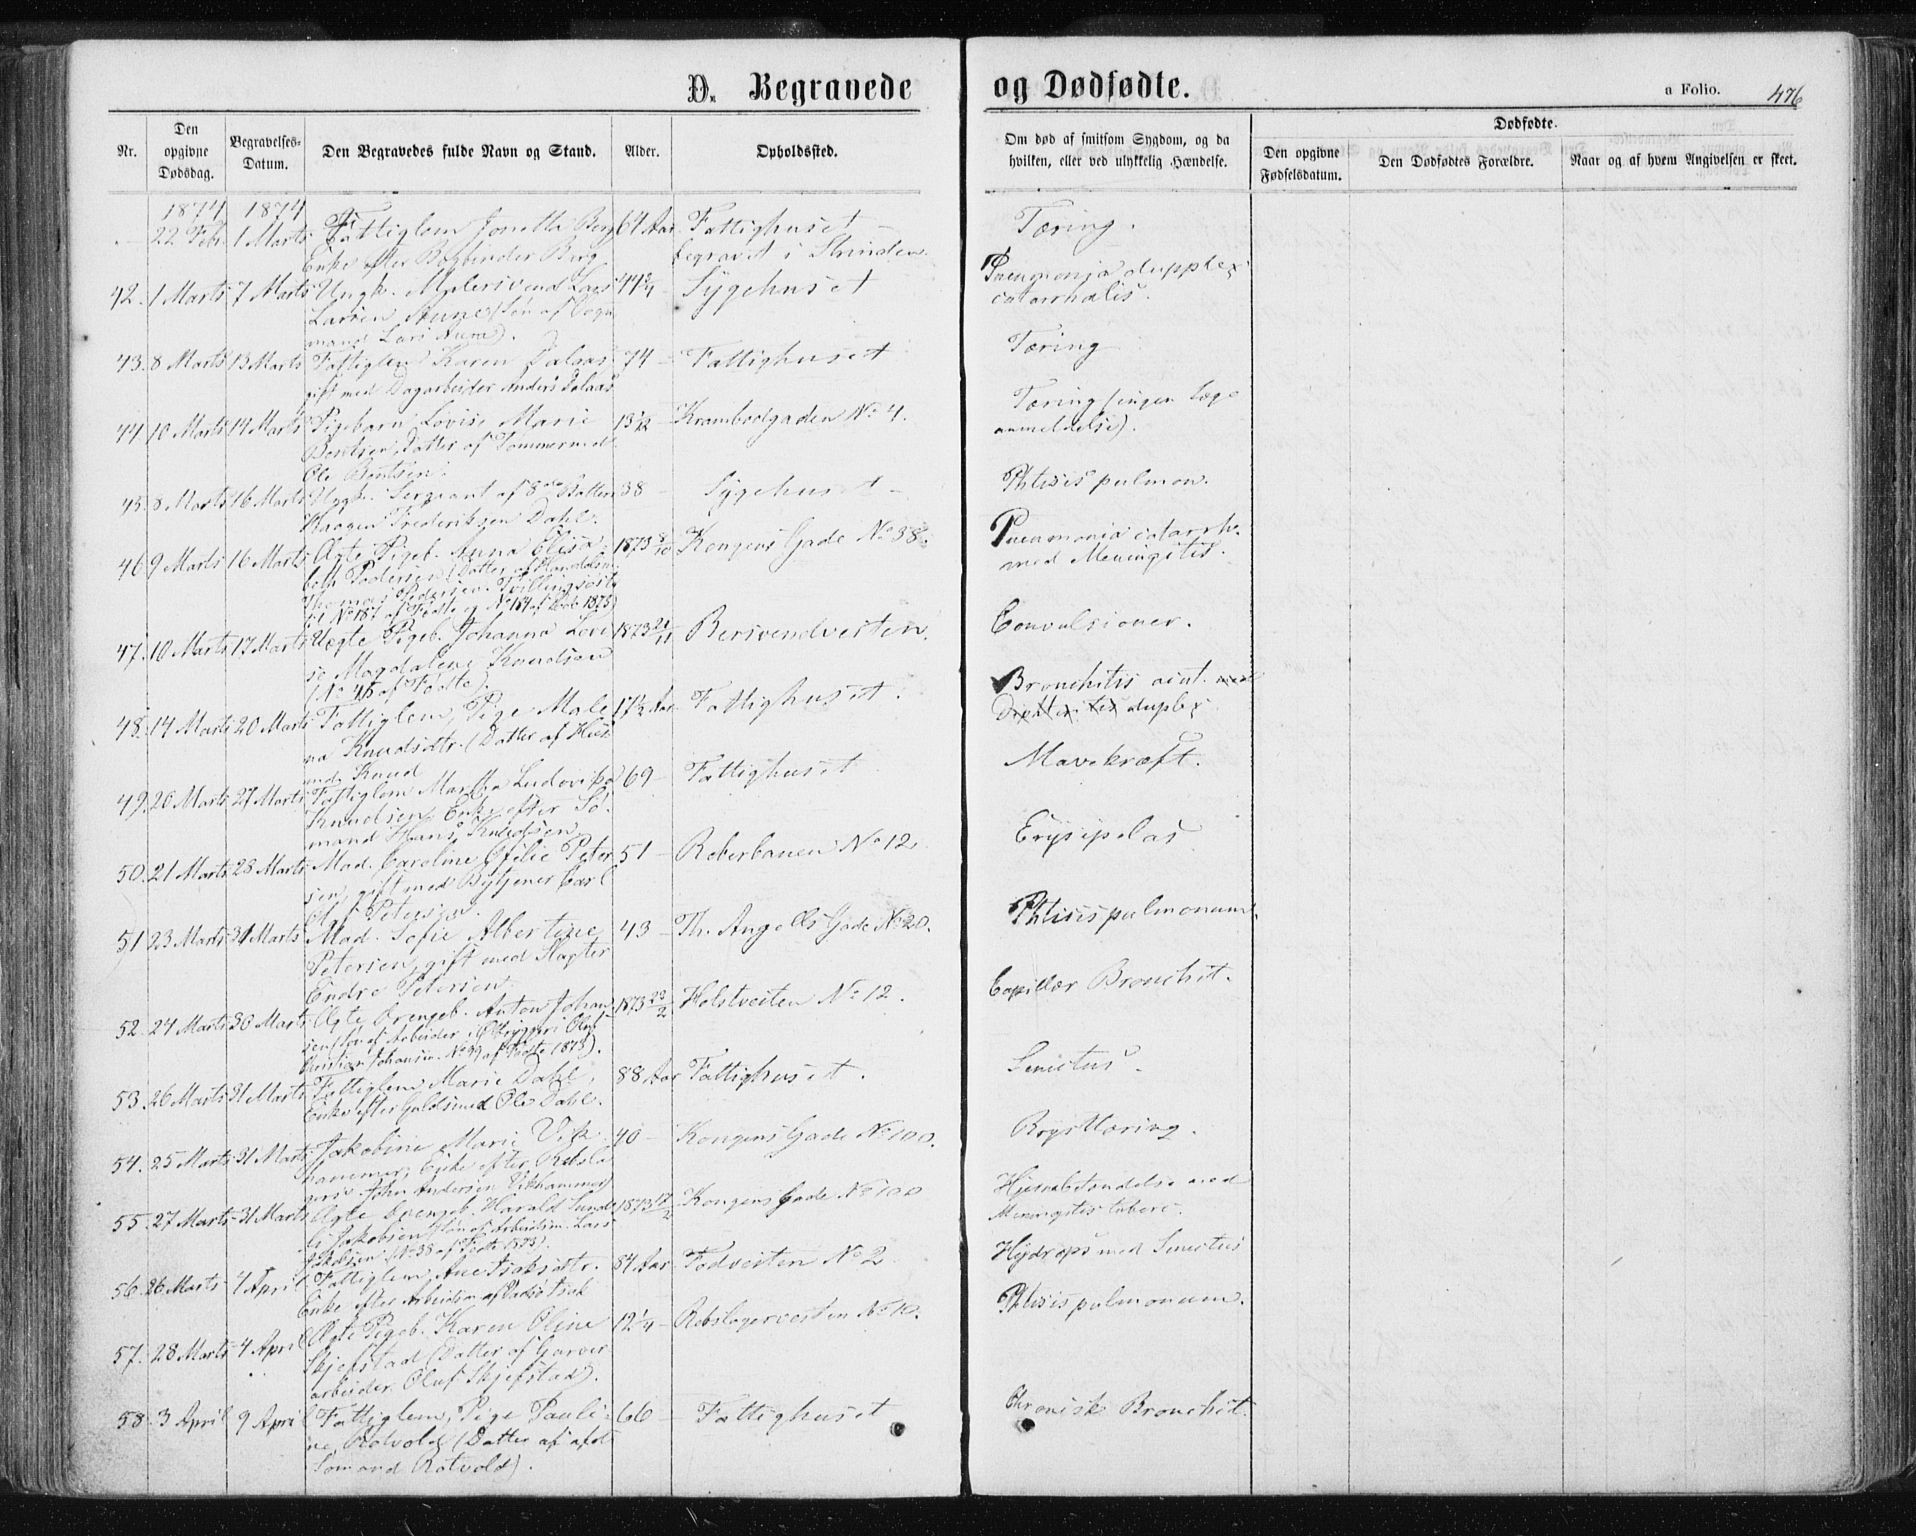 D. Begravede og Dødfødte.
a Folio. 476
Nr.
Den opgivne Dødsdag.
Begravelses-Datum.
Den Begravedes fulde Navn og Stand.
Alder.
Opholdssted.
Om død af smitsom Sygdom, og da hvilken, eller ved ulykkelig Hændelse.
Dødfødte.
Den opgivne Fødselsdatum.
Den Dødfødtes Forældre.
Naar og af hvem Angivelsen er skeet.
1874 1874
22 Febr. 1 Marts Fattiglem Jonetta Berg 64 Aar Fattighuset Tæring.
Enke efter Bogbinder Berg begravet i Strinden.
42. 1 Marts 7 Marts Ungk. Malersvend Lars 44 Sygehuset Pneumonia dupplex
Larsen Aune (Søn af Vogn catarrhalis.
mand Lars Aune).
43. 8 Marts 13 Marts Fattiglem Karen Dalaas 74 Fattighuset Tæring
gift med Dagarbeider Anders Dalaas
44. 10 Marts 14 Marts Pigebarn Lovise Marie 13 Krambodgaden No 4. Tæring (ingen Læge
Berntsen, Datter af Tømmermd. anmeldelse).
Ole Berntsen.
45. 8 Marts 16 Marts Ungk. Sergeant af 8de Batten 38 Sygehuset Phtisis pulmon.
Haagen Frederiksen Dahl.
46. 9 Marts 16 Marts Ægte Pigeb. Anna Elisa 1873 8/10 Kongens Gade No 38. Pneumonia catarrh.
beth Pedersen (Datter af Handelsm. med Meningitis.
Thomas Pedersen. Tvillingsøster
47. 10 Marts 17 Marts Uægte Pigeb. Johanna Lovi 1873 21/11 Bersvendveiten. Convulsioner.
se Magdalene Knudsen
(No 45 af Fødte).
48. 14 Marts 20 Marts Fattiglem, Pige Male 17½ Aar Fattighuset. Bronchitis acut. med
na Knudsdtr. (Datter af Huus duplex
md. Knud
49. 20 Marts 27 Marts Fattiglem Martha Ludovika 69 Fattighuset Mavekræft.
Knudsen, Enke efter Sø-
mand Hans Knudsen
50. 21 Marts 28 Marts Mad. Caroline Ofilie Peter 51 Reberbanen No 12. Erysipelas
sen, gift med Bytjener Carl
Petersen.
51. 23 Marts 31 Marts Mad. Sofie Albertine 43 Th. Angells Gade No 20. Phtisis pulmonum.
Petersen, gift med Slagter
Endre Petersen.
52. 24 Marts 30 Marts Ægte Drengeb. Anton Johan 1873 22/2 Holstveiten No 12. Capillær Bronchit.
sen (Søn af Arbeider i Ølbryggeri Oluf
Christian Johansen. No 99 af Fødte 1873).
53. 26 Marts 31 Marts Fattiglem Marie Dahl, 88 Aar Fattighuset. Senectus.
Enke efter Guldsmed Ole Dahl.
54. 25 Marts 31 Marts Jakobine Marie Vik 40 Kongens Gade No 100. Brysttæring.
hammer, Enke efter Rebsla
ger John Andersen Vikhammer
55. 27 Marts 31 Marts Ægte Drengeb. Harald 1873 Kongens Gade No 100 Hjernebetændelse med
Jakobsen (Søn af Arbeidsm. Lars Meningitis tuberc.
Jakobsen (No 38 af Fødte 1873).
56. 26 Marts 4 April Fattiglem Ane Isaksdtr. 84 Aar Fodveiten No 2 Hydrops med Senectus
Enke efter Arbeidsm.
57. 28 Marts 4 April Ægte Pigeb. Karen Oline 12¼ Rebslagerveiten No 10. Phtisis pulmonum.
Skjefstad (Datter af Garver
arbeider Oluf Skjefstad).
58. 3 April 9 April Fattiglem, Pige Pauli 66 Fattighuset Chronisk Bronchit
ne Rotvold (Datter af afd.
Sømand Rotvold).